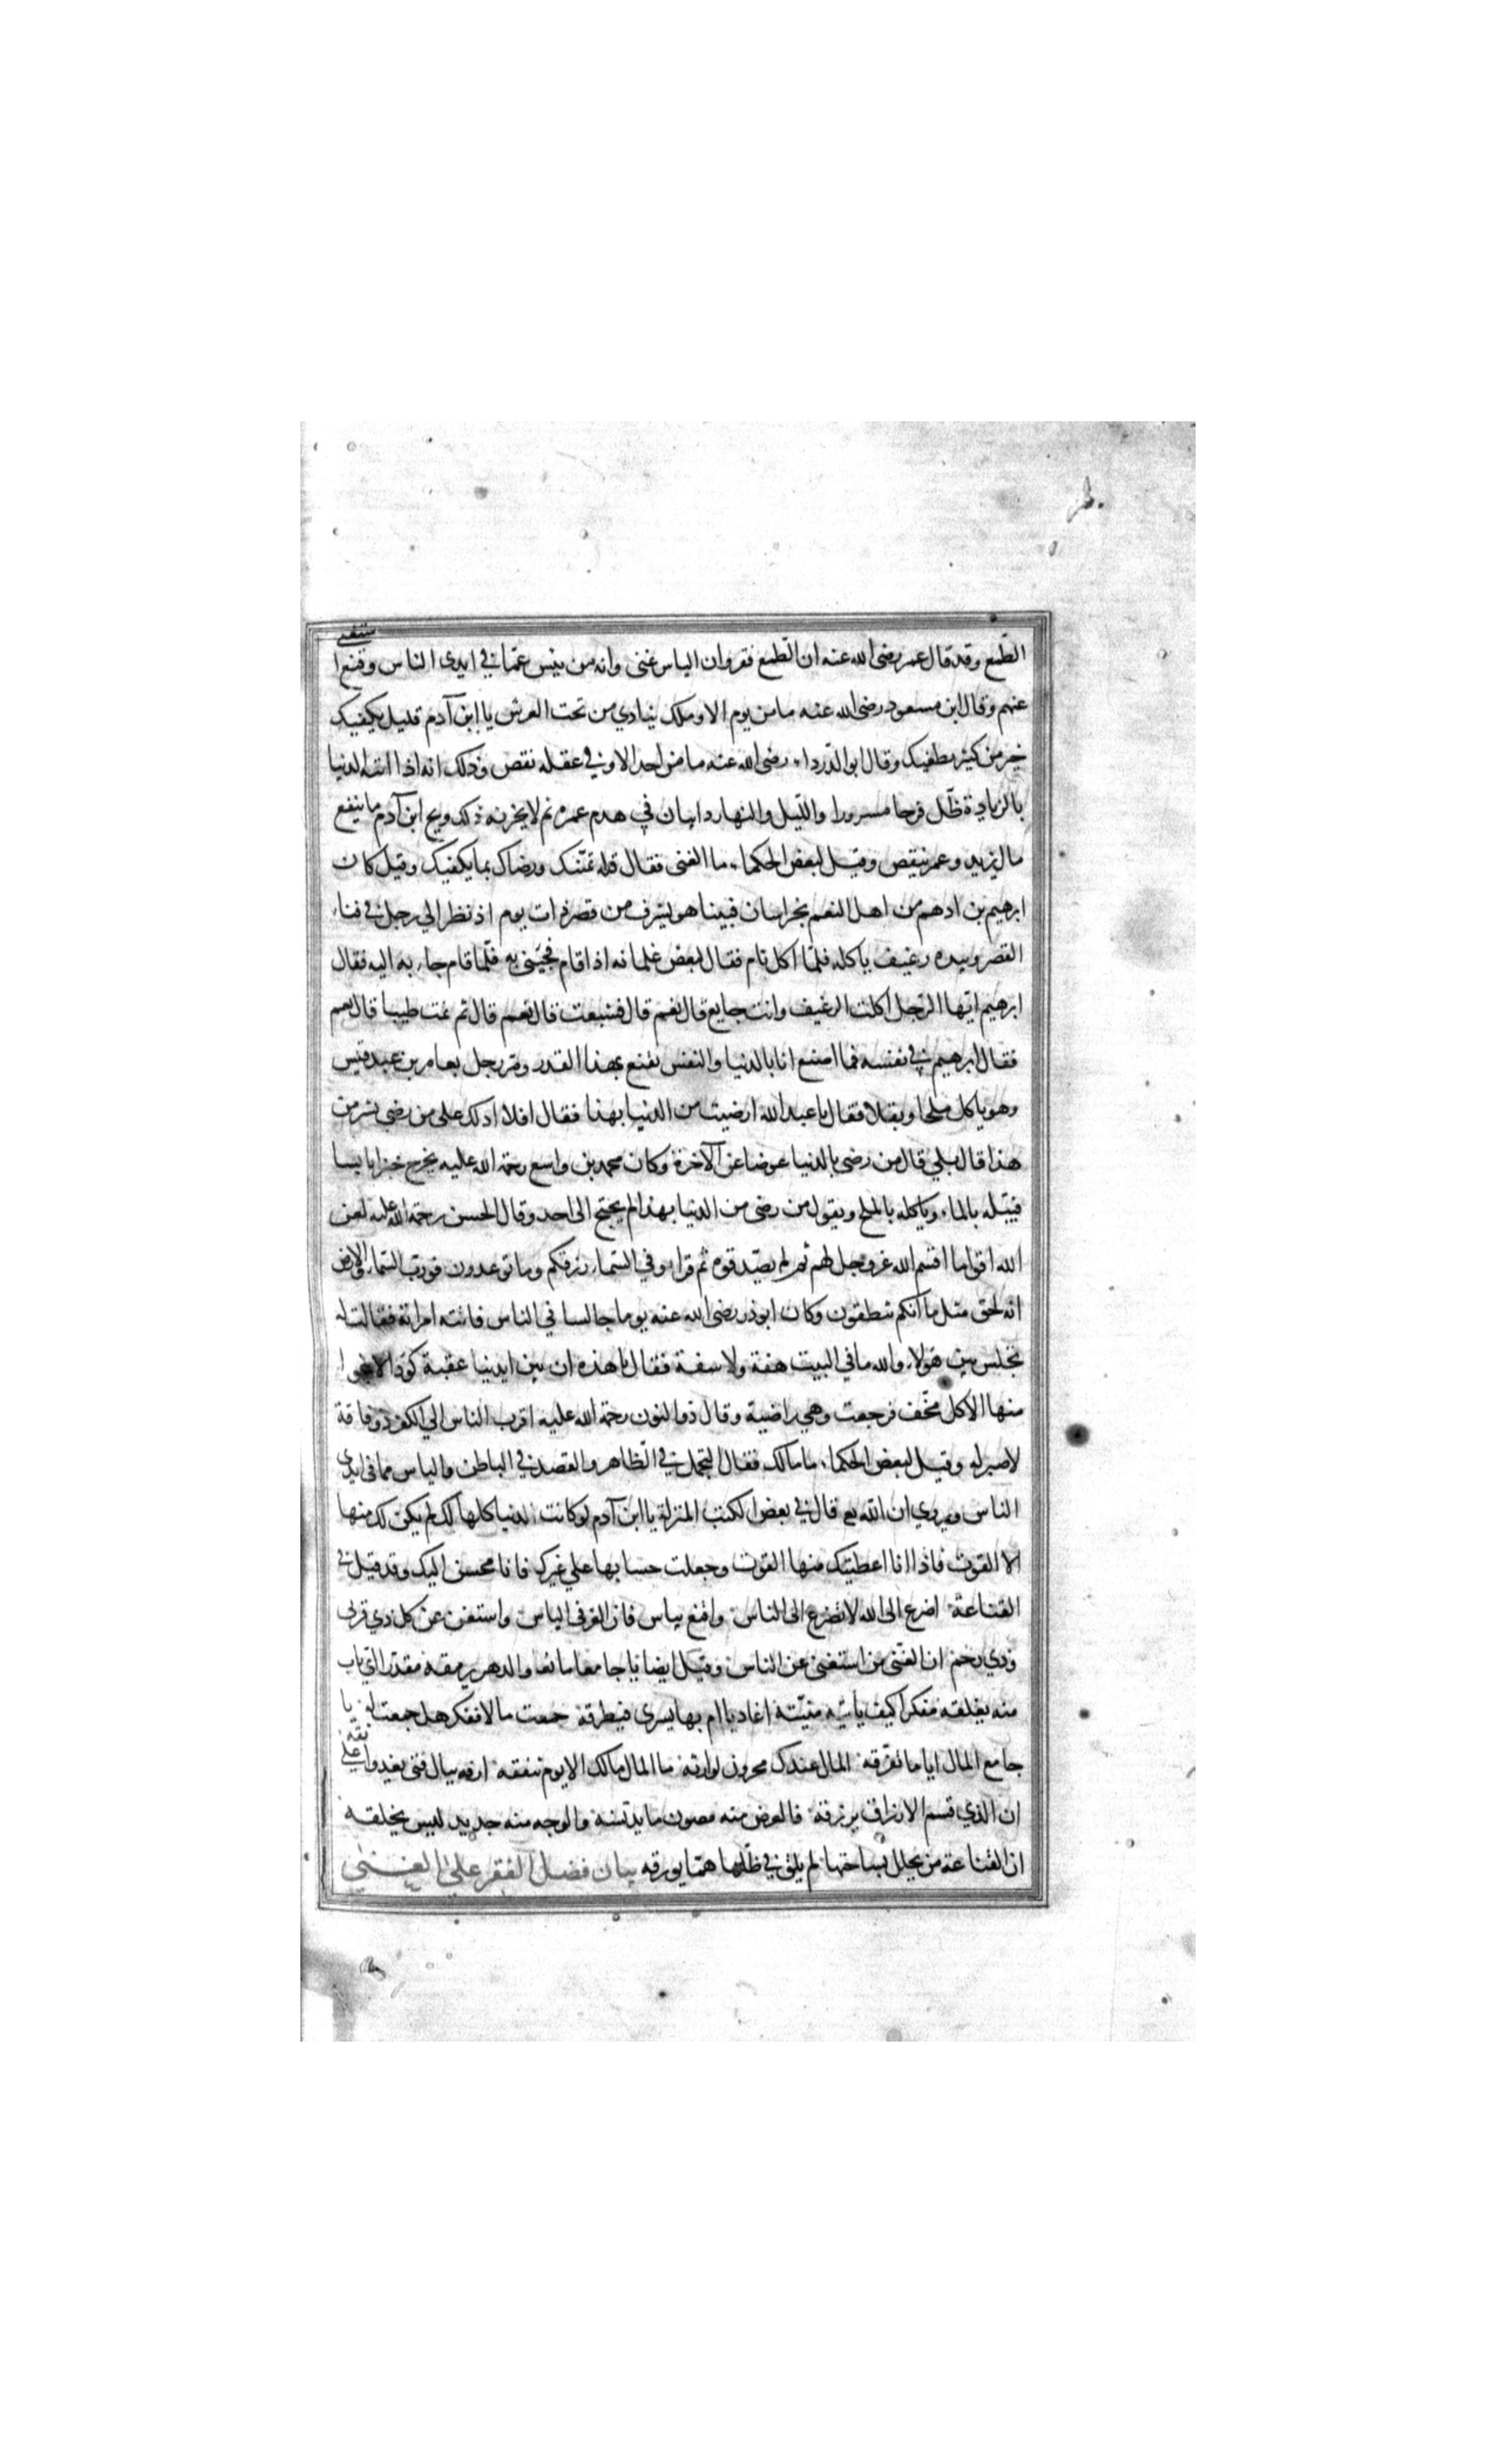 الطمع وقد قال عمر رضى الله عنه ان الطمع فقر وان الياس غنى وانه من ييس عما فى ايدى الناس وقنع استغنى
عنهم وقال ابن مسعود رضى الله عنه ما من يوم الا وملك ينادي من تحت العرش يا ابن آدم قليل يكفيك
خير من كثير يطغيك وقال ابو الدرداء رضى الله عنه ما من احد الا وفي عقله نقص وذلك انه اذا اتته الدنيا
بالزيادة ظل فرحا مسرورا والليل والنهار دايبان في هدم عمره ثم لا يحزنه ذلك ويح ابن آدم ما ينفع
مال يزيد وعمر ينقص وقيل لبعض الحكماء ما الغنى فقال قلة تمنيك ورضاك بما يكفيك وقيل كان
ابرهيم بن ادهم من اهل النعم بخراسان فبينا هو يشرف من قصر ذات يوم اذ نظر الي رجل في فناء
القصر وبيده رغيف ياكله فلما اكل نام فقال لبعض غلمانه اذا قام فجيني به فلما قام جاء به اليه فقال
ابرهيم ايها الرجل اكلت الرغيف وانت جايع قال نعم قال فشبعت قال نعم قال ثم نمت طيبا قال نعم
فقال ابرهيم في نفسه فما اصنع انا بالدنيا والنفس تقنع بهذا القدر ومر رجل بعامر بن عبد قيس
وهو ياكل ملحا وبقلا فقال يا عبد الله ارضيت من الدنيا بهذا فقال افلا ادلك على من رضي بشر من
هذا قال بلي قال من رضى بالدنيا عوضا عن الآخرة وكان محمد بن واسع رحمة الله عليه يخرج خبزا يابسا
فيبله بالماء وياكله بالملح ويقول من رضى من الدنيا بهذا لم يحتج الى احد وقال الحسن رحمة الله عليه لعن
الله اقواما اقسم الله عز وجل لهم ثم لم يصدقوه ثم قرا وفي السماء رزقكم وما توعدون فورب السماء والارض
انه لحق مثل ما انكم تنطقون وكان ابوذر رضى الله عنه يوما جالسا في الناس فاتته امراته فقالت له
تجلس بين هولاء والله ما في البيت هفة ولا سفة فقال يا هذه ان بين ايدينا عقبة كؤدا لا ينجوا
منها الا كل مخف فرجعت وهي راضية وقال ذو النون رحمة الله عليه اقرب الناس الي الكفر ذو فاقة
لا صبر له وقيل لبعض الحكماء ما مالك فقال التجمل في الظاهر والقصد في الباطن والياس مما فى ايدى
الناس ويروي ان الله تع قال في بعض الكتب المنزلة يا ابن آدم لو كانت الدنيا كلها لك لم يكن لك منها
الا القوت فاذا انا اعطيتك منها القوت وجعلت حسابها علي غيرك فانا محسن اليك وقد قيل في
القناعة اضرع الى الله لا تضرع الى الناس واقنع بياس فان العز فى الياس واستغن عن كل ذي قربى
وذي رحم ان الغنى من استغنى عن الناس وقيل ايضا يا جامعا مانعا والدهر يرمقه مقدرا اي باب
منه يغلقه مفكرا كيف ياتيه منيته اغاديا ام بها يسرى فيطرقه جمعت مالا ففكر هل جمعت له يا
جامع المال اياما تفرقه المال عندك مخزون لوارثه ما المال مالك الا يوم تنفقه ارفه ببال فتى يغدوا على ثقة
ان الذي قسم الارزاق يرزقه فالعرض منه مصون ما يدنسه والوجه منه جديد ليس يخلقه
ان القناعة من يحلل بساحتها لم يلق في ظلها هما يورقه بيان فضل الفقر علي الغنى